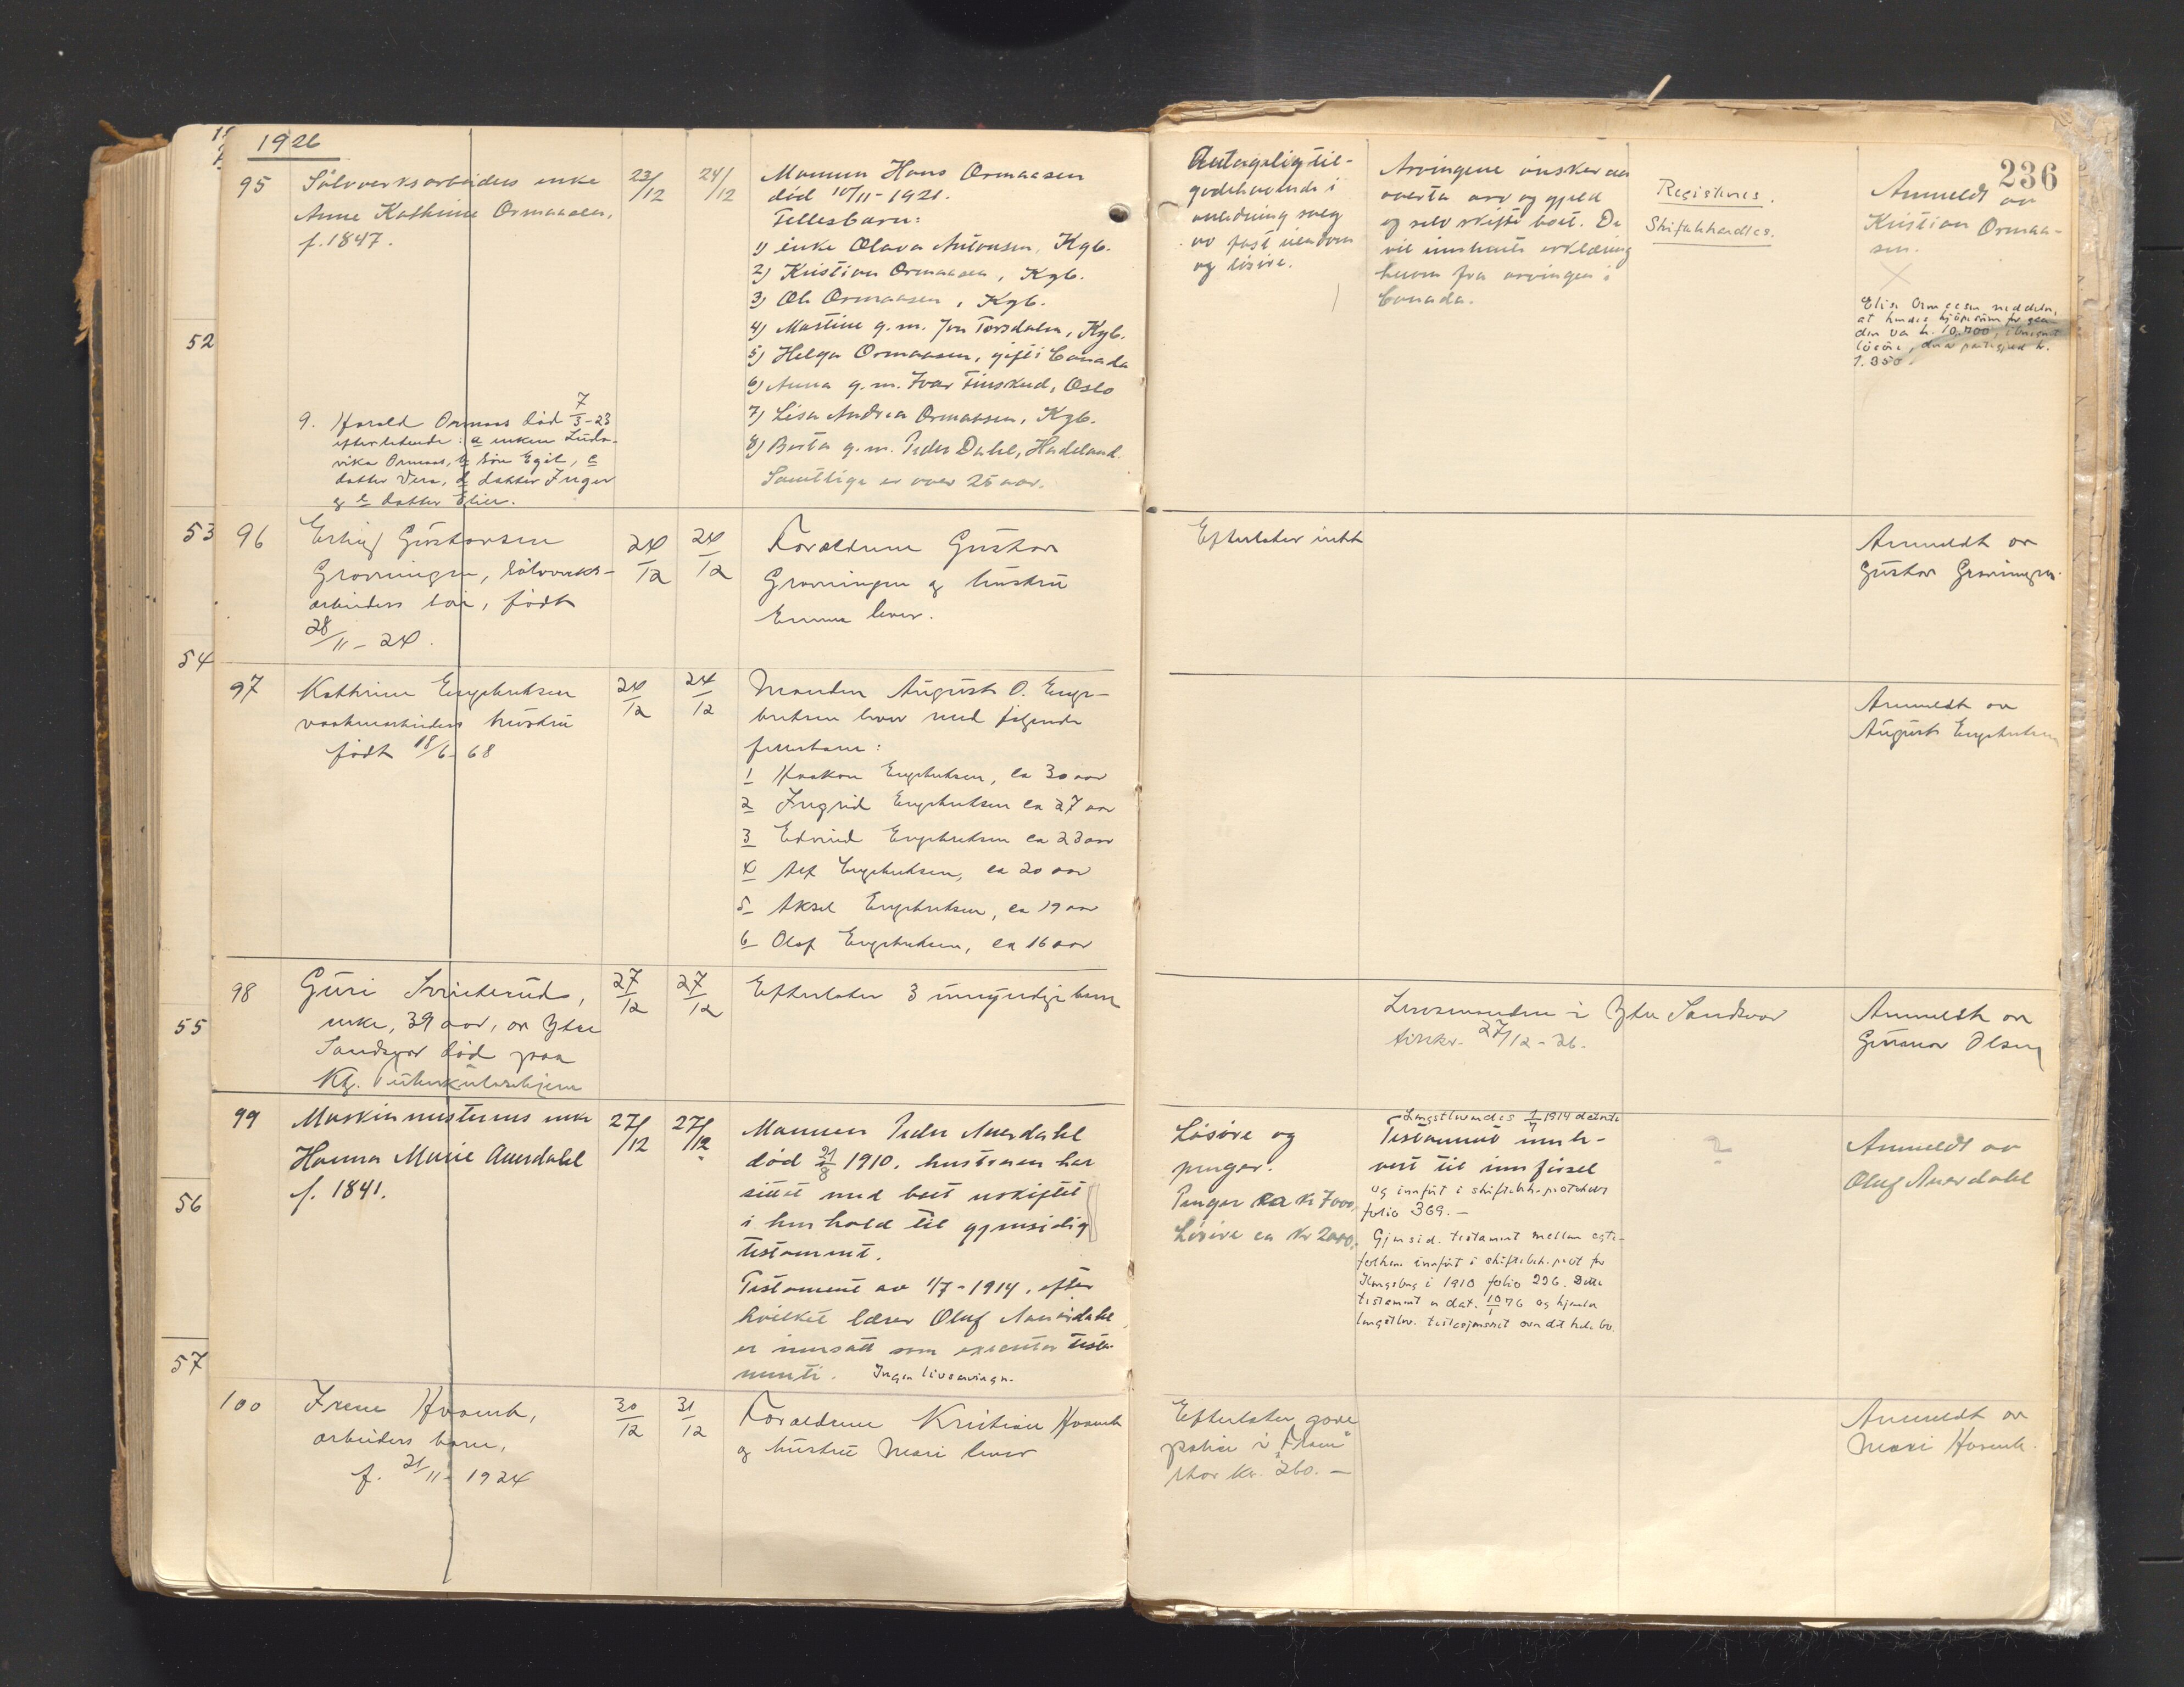 1926
236
95
Sølvverksarbeiders enke
Anne Kathrine Ormaasen,
f. 1847.
23/12
24/12
Mannen Hans Ormaasen
død 10/11-1921.
Fellesbarn:
1) enke Olava Antonsen, Kgb.
2) Kristian Ormaasen, Kgb.
3) Ole Ormaasen, Kgb.
4) Martine g.m. Jon Torsdalen, Kgb.
5) Helga Ormaasen, gift i Canada
6) Anna g.m. Ivar Finskud, Oslo
7) Lisa Andrea Ormaasen, Kgb.
8) Berta g.m. Peder Dahl, Hadeland.
Samtlige er over 25 aar.
9. Harald Ormaas død 7/3-23
efterlatende: a enken Ludo-
vika Ormaas, b søn Egil, c
datter Vera, d datter Inger
og e datter Elin.
Antagelig til-
godehavende i
anledning salg
av fast eiendom
og løsøre.
Arvingene ønsker aa
overta arv og gjeld
og selv skifte boet. De
vil innhente erklæring
herom fra arvingen i
Canada.
Registreres.
Skiftebehandles.
Anmeldt av
Kristian Ormaa-
sen.
Elise Ormaasen meddeler,
at hendes kjøpesum for gaar-
den var kr. 10.700, iberegnet
løsøre, kr.
1.350.
52
53
54
55
56
57
96
Erling Gustavsen
Grovningen, sølvverks-
arbeiders søn, født
28/11-24.
24/12
24/12
Forældrene Gustav
Grovningen og hustru
Emma lever.
Efterlater intet
Anmeldt av
Gustav Grovningen.
97
Kathrine Engebretsen
vaabenarbeiders hustru
født 18/6-68
24/12
24/12
Manden August O. Enge-
bretsen lever med følgende
fellesbarn:
1 Haakon Engebretsen, ca 30 aar
2 Ingrid Engebretsen ca 27 aar
3 Edvind Engebretsen ca 23 aar
4 Alf Engebretsen, ca 20 aar
5 Aksel Engebretsen, ca 19 aar
6 Olaf Engebretsen, ca 16 aar
Anmeldt av
August Engebretsen
98
Guri
enke, 39 aar, av Ytre
Sandsvær død paa
Kbg. Tuberkulosehjem
27/12
27/12
Efterlater 3 umyndige barn
Lensmanden i Ytre Sandsvær
tilskr. 27/12-26.
Anmeldt av
Gunnar Olsen
99
Maskinmesterens enke
Hanna Marie Auerdahl
f. 1841.
27/12
27/12
Mannen Peder Auerdahl
død 21/8 1910. hustruen har
sittet med boet uskiftet
i henhold til gjensidig
testament.
Testament av 1/7-1914, efter
hvilket lærer Oluf Auerdahl
er innsatt som executor testa-
menti. Ingen livsarvinger.
Løsøre og
penger.
Penger ca kr 7000,
Løsøre ca kr 2000,
Lengstlevendes 1/7 1914 daterte
Testament inn le-
vert til innførsel
og innført i skiftebeh. protokoll
folio 369. —
Gjensid. testament mellem egte-
folkene innført i skiftebeh. prot for
Kongsberg i 1910 folio 296. Dette
testament er dat. 10/1 76 og hjemler
lengstlev. testasjonsret over det hele bo.
?
Anmeldt av
Oluf Auerdahl
100
Irene Hvamb,
arbeiders barn,
f. 21/11-1924
30/12
31/12
Forældrene Kristian Hvamb
og hustru Mari lever
Efterlater gave
police i "Fram"
stor kr. 260. —
Anmeldt av
Mari Hvamb.